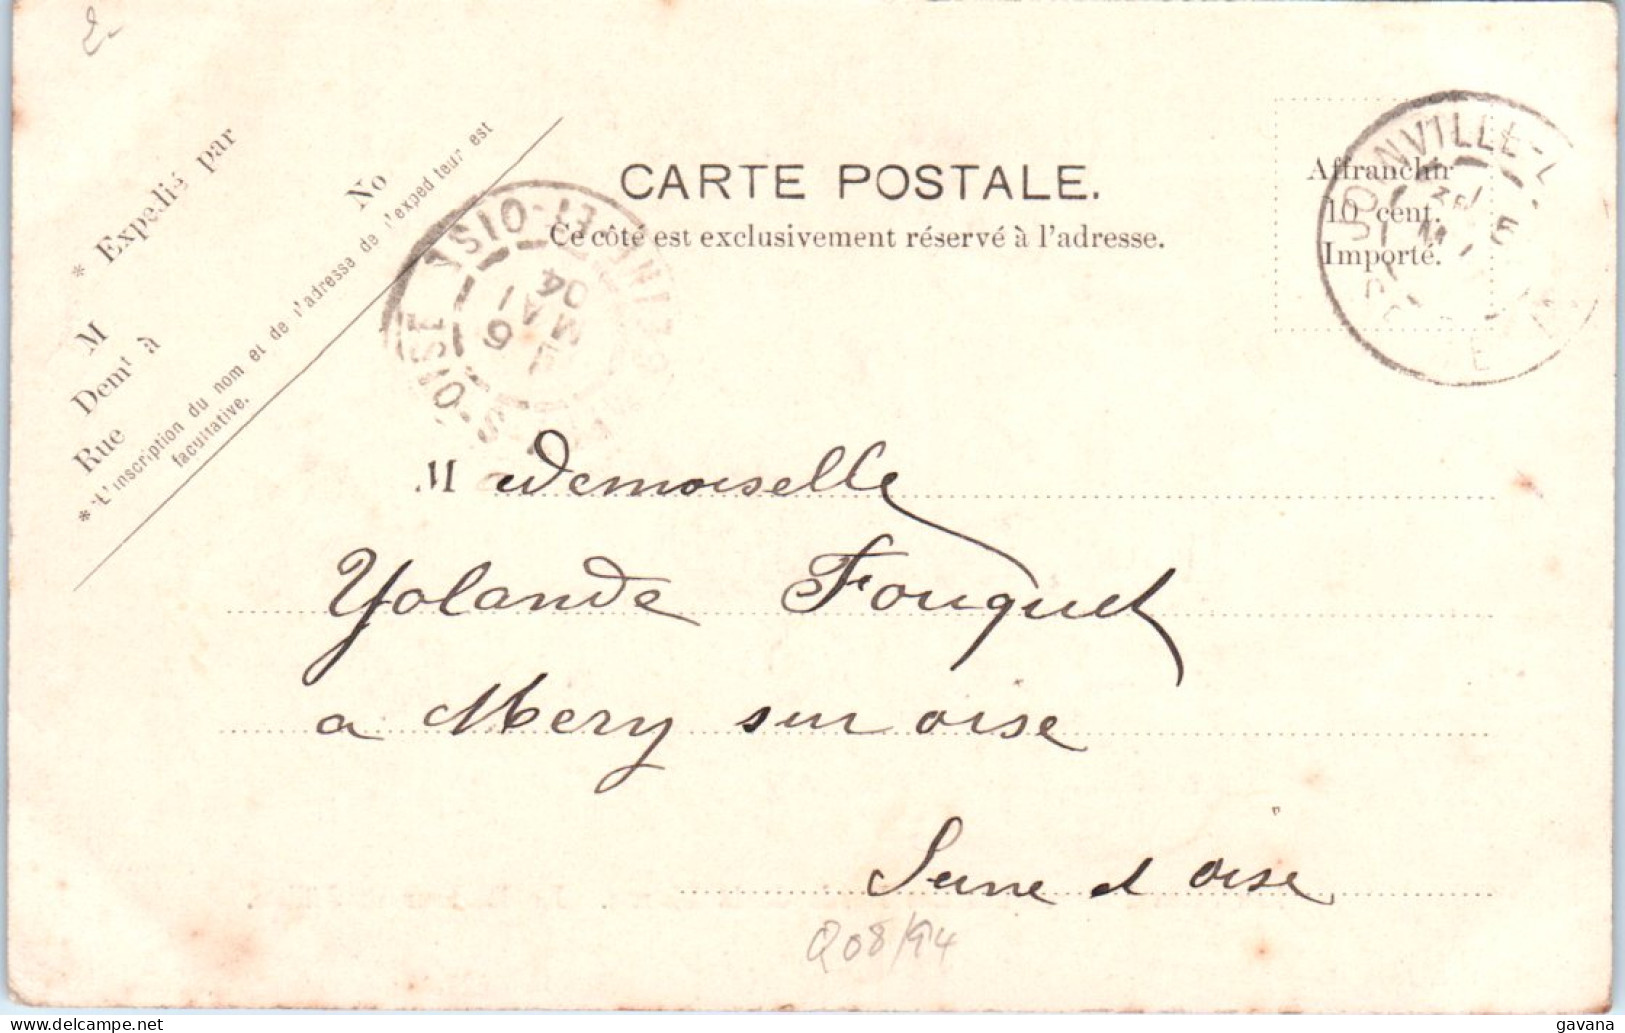 2-
* Expédié par
M
No
Demt à
Rue
* L'inscription du nom et de l'adresse de l'expéditeur est
facultative.
CARTE POSTALE.
Ce côté est exclusivement réservé à l'adresse.
Affranchir
10 cent.
Importé.
JOINVILLE-L
SEINE-ET-OISE
S-OISE
6
MAI
04
Mademoiselle
Yolande Fouquet
a Mery sur oise
Seine et oise
Q08/94
delcampe.net
gavana